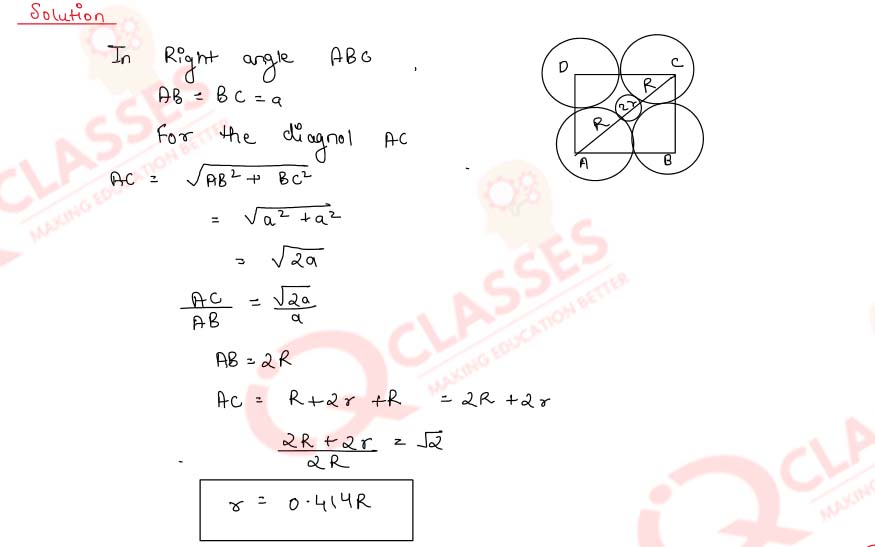 Solution
In Right angle ABC
AB = BC = a
For the diagnol AC
AC = √AB² + BC²
= √a² + a²
= √2a
AC/AB = √2a/a
AB = 2R
AC = R + 2r + R = 2R + 2r
2R + 2r/2R = √2
r = 0.414R
D
C
R
2r
R
A
B
CLASSES
MAKING EDUCATION BETTER
IQ CLASSES
MAKING EDUCATION BETTER
CLASSES
MAKING